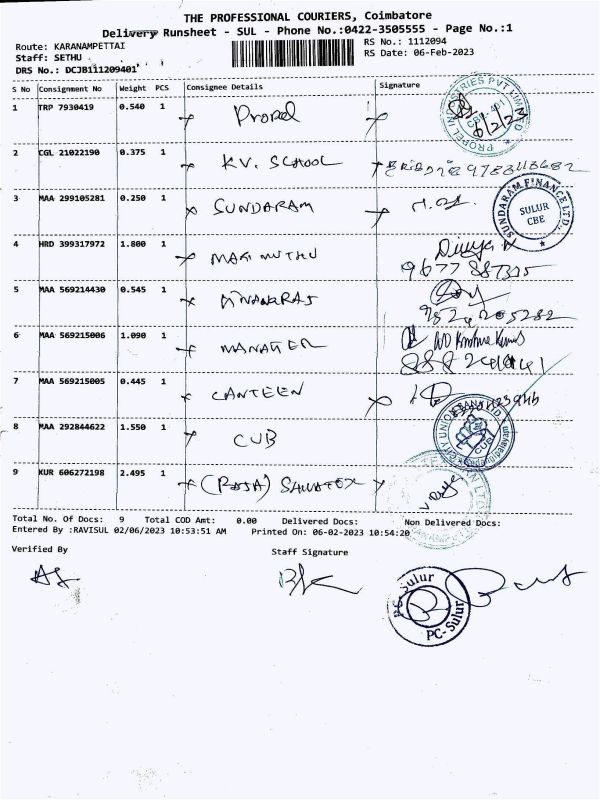 THE PROFESSIONAL COURIERS, Coimbatore
Delivery Runsheet - SUL - Phone No.:0422-3505555 - Page No.:1
Route: KARANAMPETTAI
RS No.: 1112094
Staff: SETHU
RS Date: 06-Feb-2023
DRS No.: DCJB111209401
S No Consignment No Weight PCS Consignee Details Signature
1 TRP 7930419 0.540 1 Propel
PROPEL INDUSTRIES PVT LIMITED
6/2/23
2 CGL 21022190 0.375 1 KV. SCHOOL
3 MAA 299105281 0.250 1 SUNDARAM
SUNDARAM FINANCE LTD.,
SULUR
CBE
4 HRD 399317972 1.800 1 MARIMUTHU Divya
5 MAA 569214430 0.545 1
6 MAA 569215006 1.090 1 MANAGER
7 MAA 569215005 0.445 1 CANTEEN
8 MAA 292844622 1.550 1 CUB
CITY UNION BANK LTD.
CUB
9 KUR 606272198 2.495 1 (RAJA)
Total No. Of Docs: 9 Total COD Amt: 0.00 Delivered Docs: Non Delivered Docs:
Entered By :RAVISUL 02/06/2023 10:53:51 AM Printed On: 06-02-2023 10:54:20
Verified By Staff Signature
PC-Sulur
PC-Sulur